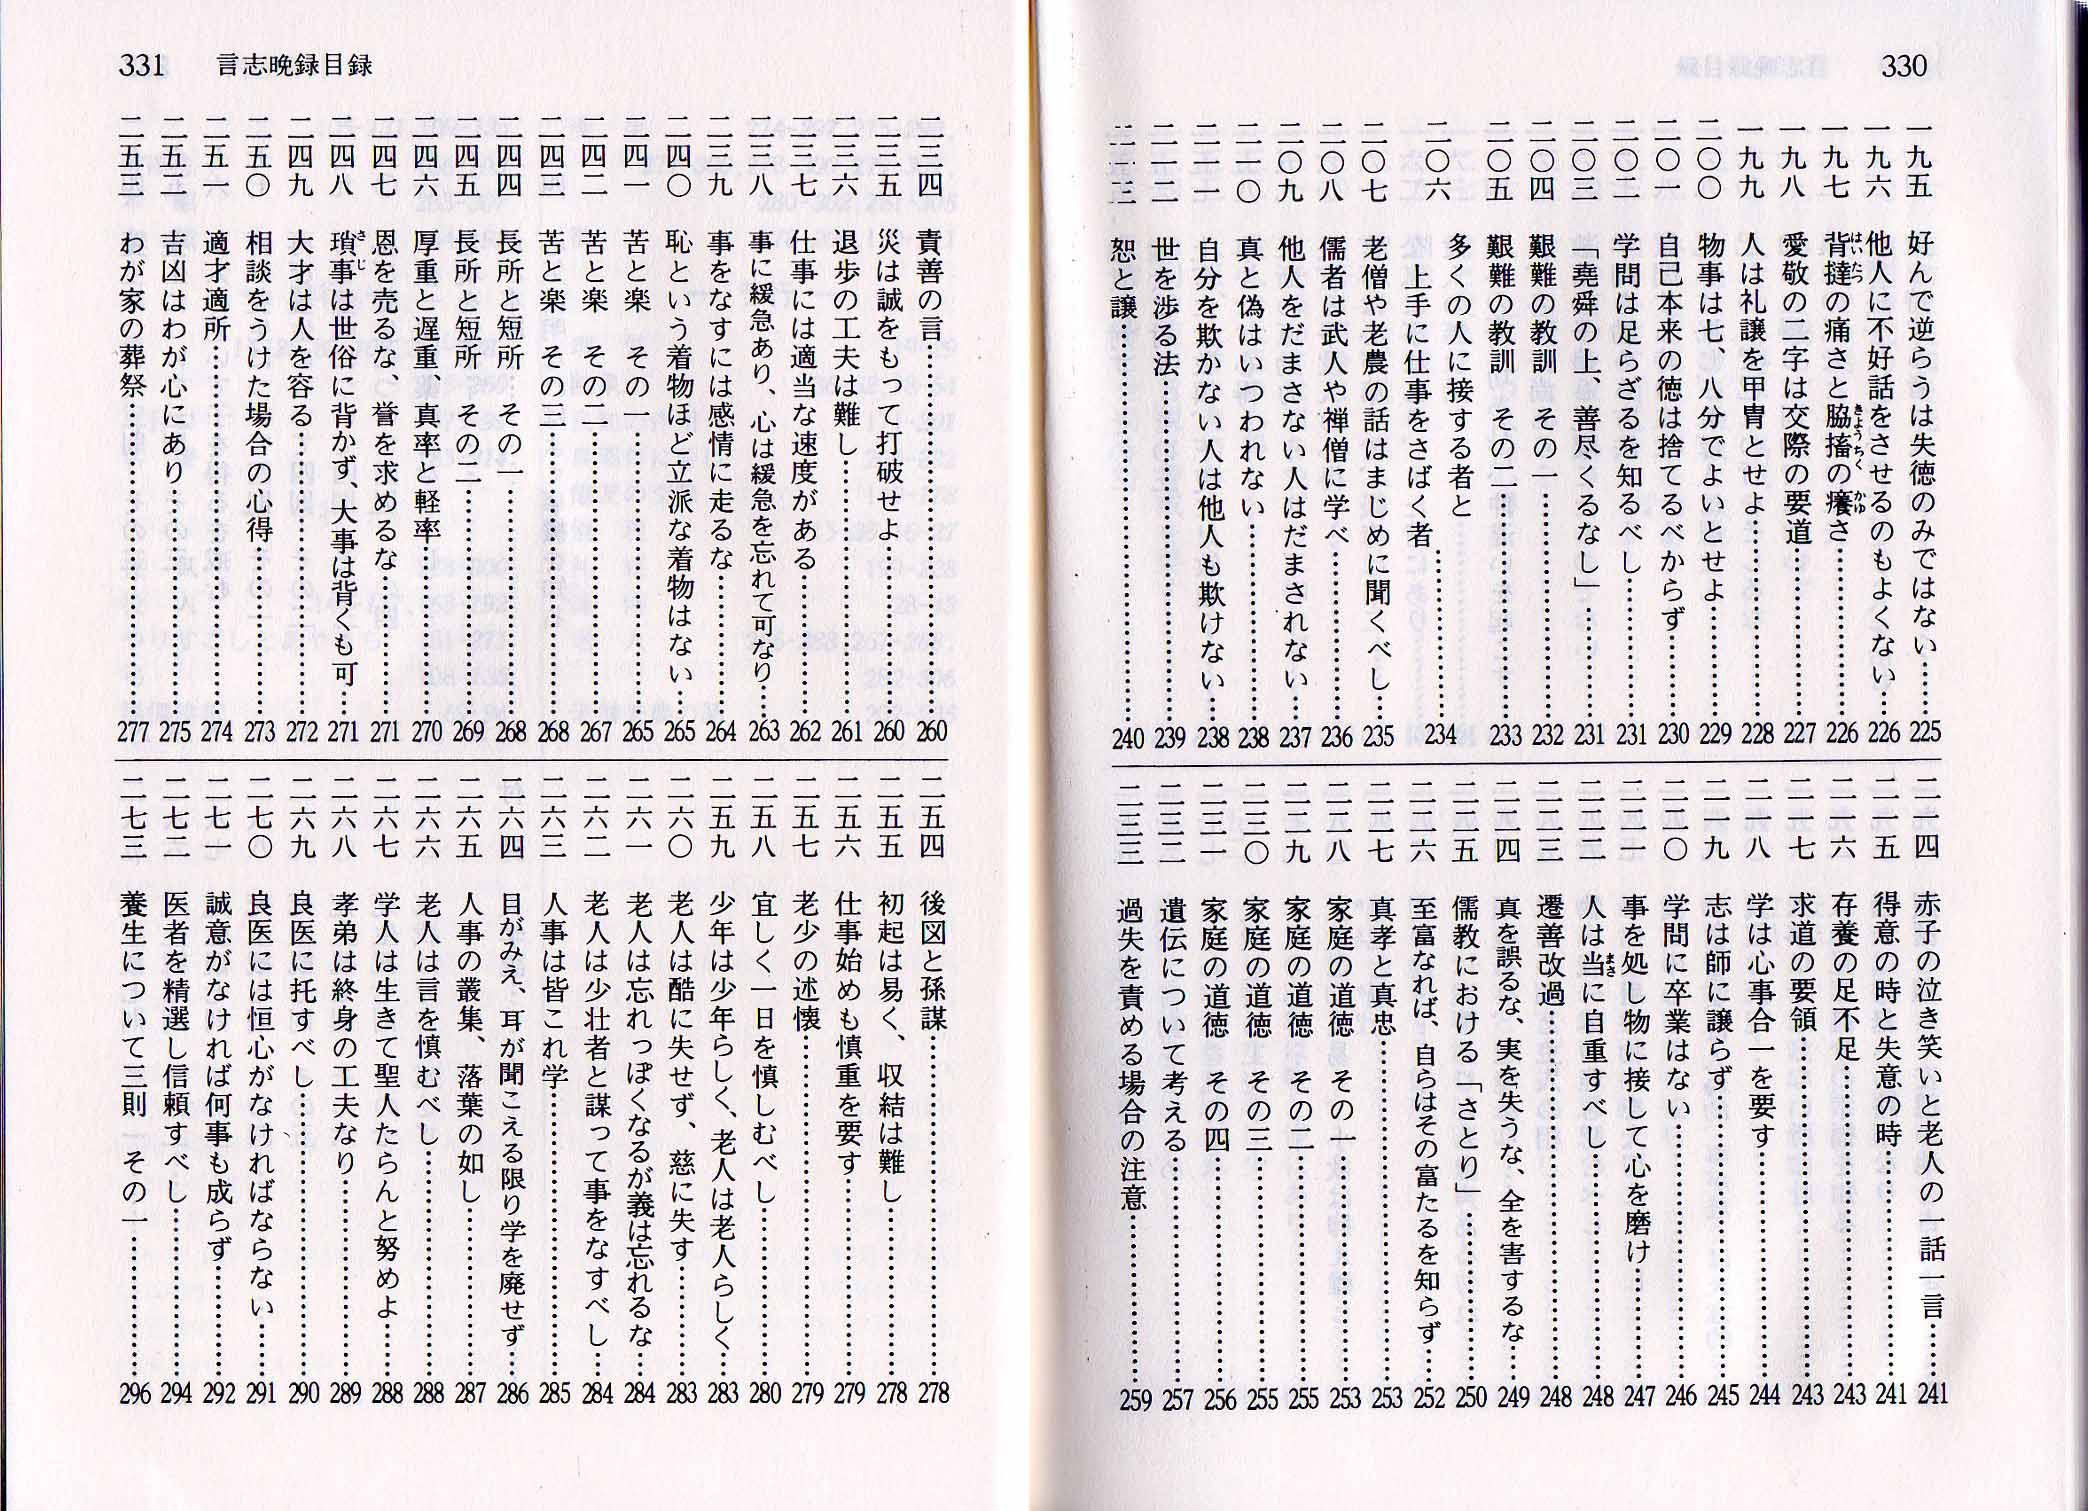 330
一九五 好んで逆らうは失徳のみではない……225
一九六 他人に不好話をさせるのもよくない……226
一九七 背撻はいたつの痛さと脇搐きょうちくの癢かゆさ……226
一九八 愛敬の二字は交際の要道……227
一九九 人は礼譲を甲冑とせよ……228
二〇〇 物事は七、八分でよいとせよ……229
二〇一 自己本来の徳は捨てるべからず……230
二〇二 学問は足らざるを知るべし……231
二〇三 「堯舜の上、善尽くるなし」……231
二〇四 艱難の教訓 その一……232
二〇五 艱難の教訓 その二……233
二〇六 多くの人に接する者と
上手に仕事をさばく者……234
二〇七 老僧や老農の話はまじめに聞くべし……235
二〇八 儒者は武人や禅僧に学べ……236
二〇九 他人をだまさない人はだまされない……237
二一〇 真と偽はいつわれない……238
二一一 自分を欺かない人は他人も欺けない……238
二一二 世を渉る法……239
二一三 恕と譲……240
二一四 赤子の泣き笑いと老人の一話一言……241
二一五 得意の時と失意の時……241
二一六 存養の足不足……243
二一七 求道の要領……243
二一八 学は心事合一を要す……244
二一九 志は師に譲らず……245
二二〇 学問に卒業はない……246
二二一 事を処し物に接して心を磨け……247
二二二 人は当まさに自重すべし……248
二二三 遷善改過……248
二二四 真を誤るな、実を失うな、全を害するな……249
二二五 儒教における「さとり」……250
二二六 至富なれば、自らはその富たるを知らず……252
二二七 真孝と真忠……253
二二八 家庭の道徳 その一……253
二二九 家庭の道徳 その二……255
二三〇 家庭の道徳 その三……255
二三一 家庭の道徳 その四……256
二三二 遺伝について考える……257
二三三 過失を責める場合の注意……259
331 言志晩録目録
二三四 責善の言……260
二三五 災は誠をもって打破せよ……260
二三六 退歩の工夫は難し……261
二三七 仕事には適当な速度がある……262
二三八 事に緩急あり、心は緩急を忘れて可なり……263
二三九 事をなすには感情に走るな……264
二四〇 恥という着物ほど立派な着物はない……265
二四一 苦と楽 その一……265
二四二 苦と楽 その二……267
二四三 苦と楽 その三……268
二四四 長所と短所 その一……268
二四五 長所と短所 その二……269
二四六 厚重と遅重、真率と軽率……270
二四七 恩を売るな、誉を求めるな……271
二四八 瑣事さじは世俗に背かず、大事は背くも可……271
二四九 大才は人を容る……272
二五〇 相談をうけた場合の心得……273
二五一 適才適所……274
二五二 吉凶はわが心にあり……275
二五三 わが家の葬祭……277
二五四 後図と孫謀……278
二五五 初起は易く、収結は難し……278
二五六 仕事始めも慎重を要す……279
二五七 老少の述懐……279
二五八 宜しく一日を慎しむべし……280
二五九 少年は少年らしく、老人は老人らしく……283
二六〇 老人は酷に失せず、慈に失す……283
二六一 老人は忘れっぽくなるが義は忘れるな……284
二六二 老人は少壮者と謀って事をなすべし……284
二六三 人事は皆これ学……285
二六四 目がみえ、耳が聞こえる限り学を廃せず……286
二六五 人事の叢集、落葉の如し……287
二六六 老人は言を慎むべし……288
二六七 学人は生きて聖人たらんと努めよ……288
二六八 孝弟は終身の工夫なり……289
二六九 良医に托すべし……290
二七〇 良医には恒心がなければならない……291
二七一 誠意がなければ何事も成らず……292
二七二 医者を精選し信頼すべし……294
二七三 養生について三則 その一……296